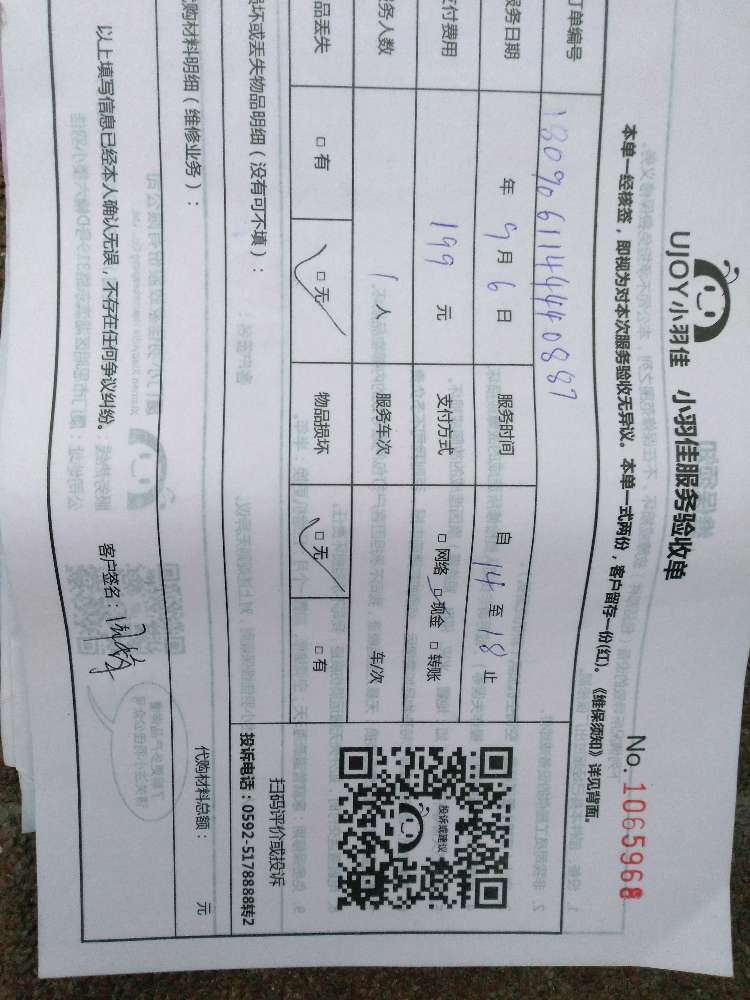 UJOY小羽佳 小羽佳服务验收单
No. 1065968
本单一经核签，即视为对本次服务验收无异议。本单一式两份，客户留存一份(红)。《维保须知》详见背面。
订单编号 18090611444440887
服务日期 年 9 月 6 日 服务时间 自 14 至 18 止
支付费用 199 元 支付方式 □ 网络 □ 现金 □ 转账
服务人数 1 人 服务车次 车/次
物品丢失 □ 有 □ 无 物品损坏 □ 无 □ 有
投诉或建议
扫码评价或投诉
投诉电话：0592-5178888转2
损坏或丢失物品明细（没有可不填）：
代购材料明细（维修业务）：
代购材料总额： 元
以上填写信息已经本人确认无误，不存在任何争议纠纷。
客户签名：